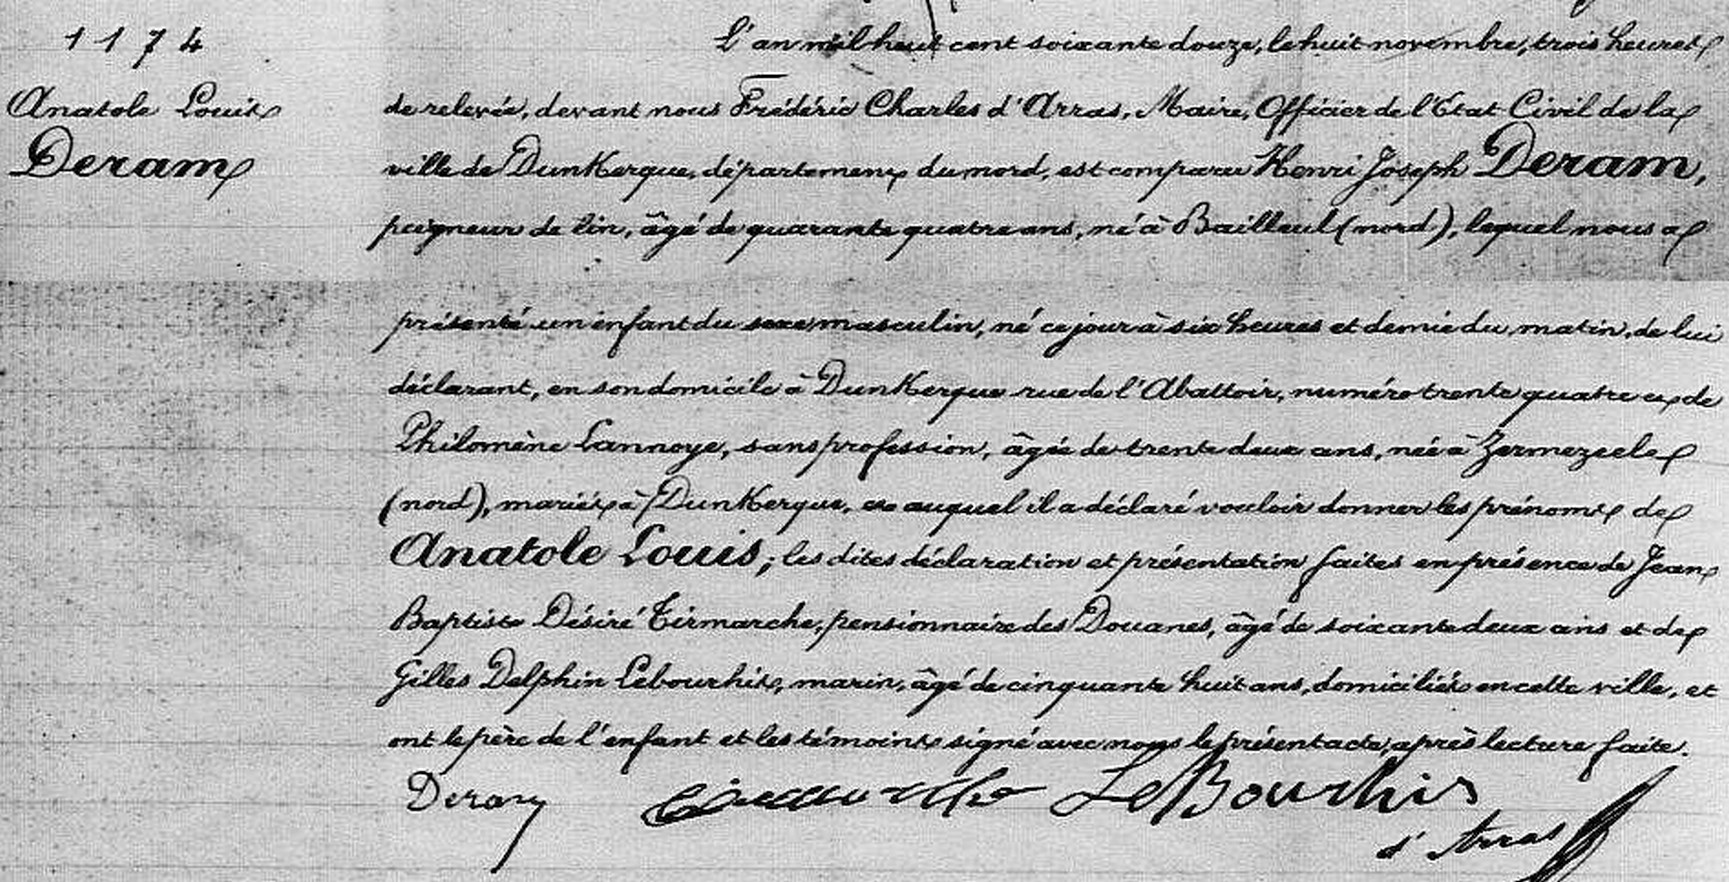 1174
Anatole Louis
Deram
L'an mil huit cent soixante douze, le huit novembre, trois heures
de relevée, devant nous Frédéric Charles d'Arras, Maire, Officier de l'Etat Civil de la
ville de Dunkerque, département du nord, est comparu Henri Joseph Deram,
peigneur de lin, âgé de quarante quatre ans, né à Bailleul (nord), lequel nous a
présenté un enfant du sexe masculin, né ce jour à six heures et demie du matin, de lui
déclarant, en son domicile à Dunkerque rue de l'Abattoir, numéro trente quatre et de
Philomène Lannoye, sans profession, âgée de trente deux ans, née à Zermezeele
(nord), mariés à Dunkerque, et auquel il a déclaré vouloir donner les prénoms de
Anatole Louis; les dites déclaration et présentation faites en présence de Jean
Baptiste Désiré Tirmarche, pensionnaire des Douanes, âgé de soixante deux ans et de
Gilles Delphin Lebourhis, marin, âgé de cinquante huit ans, domiciliés en cette ville, et
ont le père de l'enfant et les témoins signé avec nous le présent acte, après lecture faite.
Deram LeBourhis
d'Arras